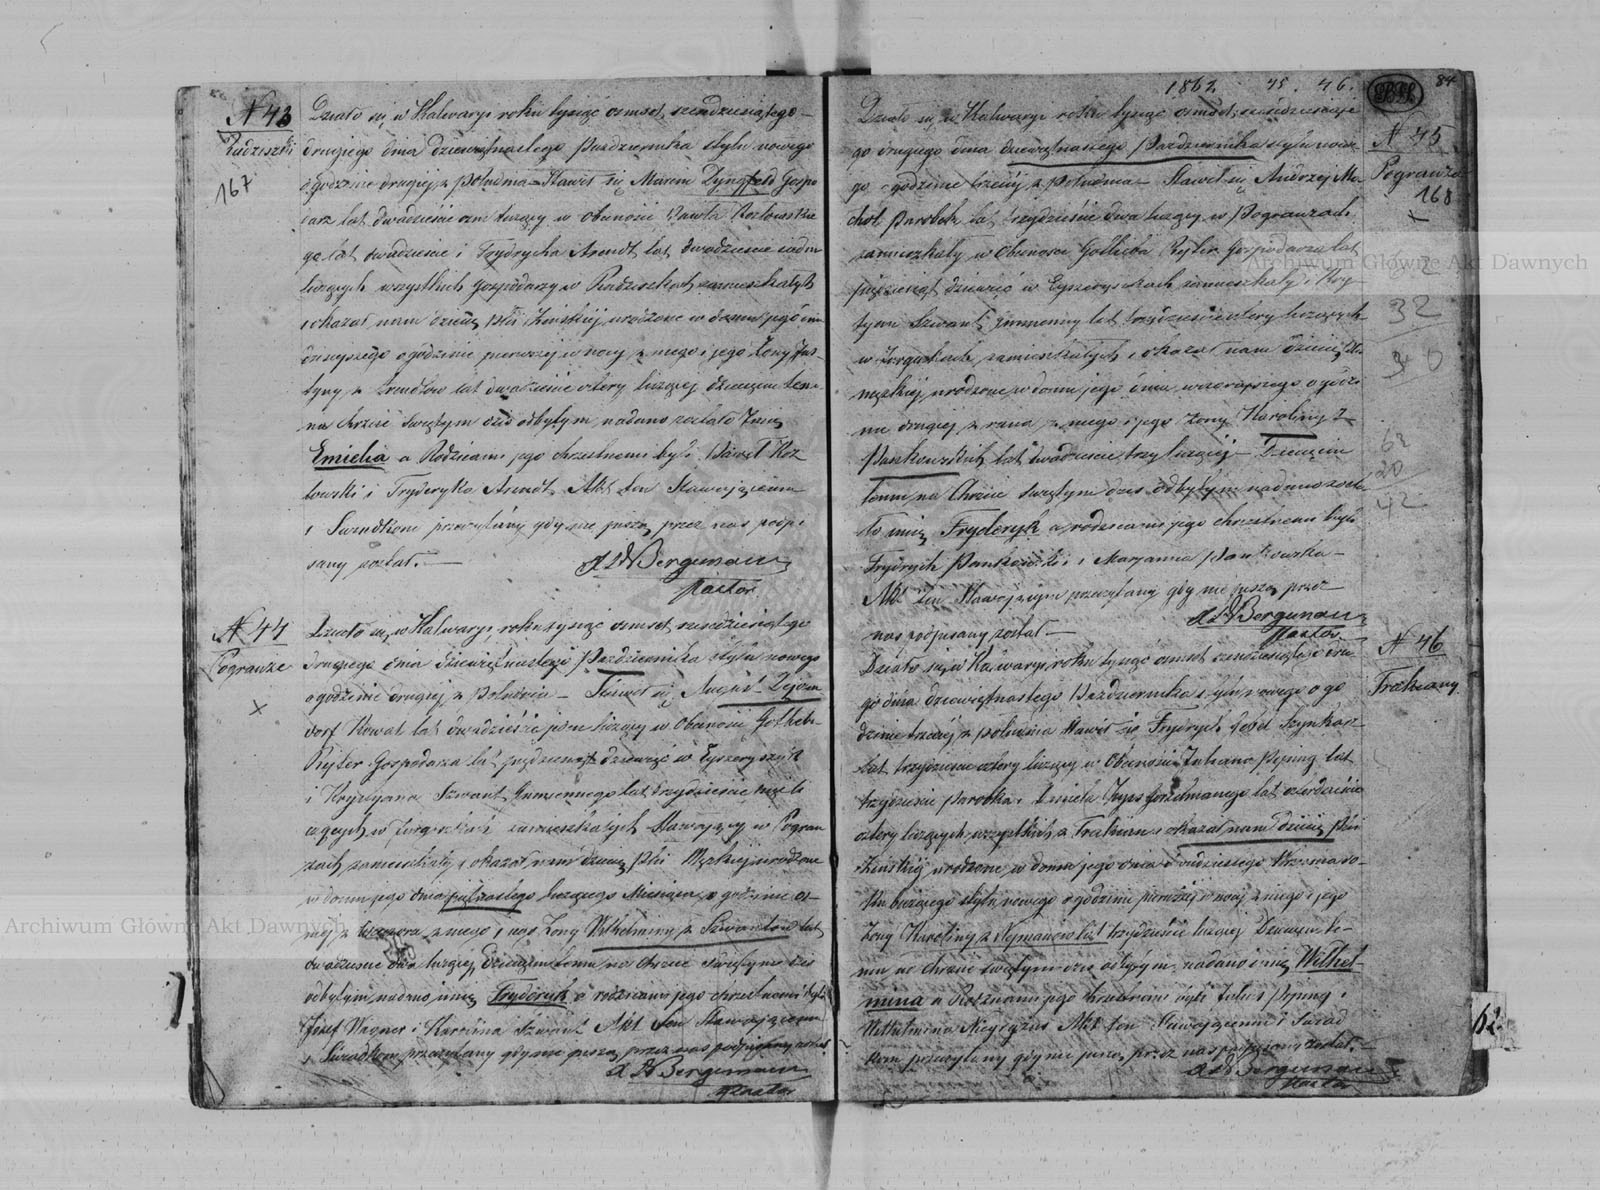 N 43
Radziszki
167
Działo się w Kalwaryi roku tysiąc osmset szesdziesiątego
drugiego dnia dziewiętnastego Pazdziernika stylu nowego
o godzinie drugiej z południa Stawił się Marcin Zyngfeld Gospo
darz lat dwadziescie osm liczący w Obecności Pawła Kozłowskie
go lat dwadziescie i Frydrycha Arendt lat dwadziescie siedm
liczących wszystkich Gospodarzy w Radziszkach zamieszkałych
i okazał nam dziecię płci Zenskiej urodzone w domu jego dnia
dzisiejszego o godzinie pierwszej w nocy z niego i jego Zony Jus
tyny z lat dwadziescie cztery liczącej Dziecięciu temu
na chrzcie Swiętym dziś odbytym nadano zostało Imię
Emielia a Rodzicami jego chrzestnemi byli Paweł Koz
łowski i Fryderyka Arendt Akt ten Stawającemu
i Swiadkom przeczytany gdy nie piszą przez nas podpi
sany został.
Bergemann
Pastor
N 44
Pogranze
X
Działo się w Kalwaryi roku tysiąc osmset szesdziesiątego
drugiego dnia dziewiętnastego Pazdziernika stylu nowego
o godzinie drugiej z Południa Stawił się August
dorf Kowal lat dwadzieście liczący w Obecności Gotlieba
Ryter Gospodarza lat piędziesiąt dziewięć w
i Krystyana Szwant lat trzydzieście li
czących w zamieszkałych Stawający w Pogran
zach zamieszkały, okazał nam dziecię płci Męzkiej urodzone
w domu jego dnia piętnastego bieżącego Miesiąca o godzinie os
mej z wieczora z niego i jego Zony Wilhelminy z Szwantów lat
dwadzieście dwa liczącej Dziecięciu temu na Chrzcie Swiętym dziś
odbytym nadano imię Fryderyk a rodzicami jego chrzestnemi byli
Józef Wagner i Karolina Szwant Akt ten Stawającemu
i Swiadkom przeczytany gdy nie piszą przez nas podpisany został
Bergemann
Pastor
1862 45. 46.
84
N 45
Pogranze
168
X
Działo się w Kalwaryi roku tysiąc osmset szesdziesiąte
go drugiego dnia dziewiętnastego Pazdziernika stylu nowe
go o godzinie trzeciej z południa Stawił się Andrzej Ma
choł Parobek lat trzydzieście dwa liczący w Pogranzach
zamieszkały w Obecności Gotlieba Ryter Gospodarza lat
piędziesiąt dziewięć w zamieszkały i Krys
tyan Szwant lat trzydzieście cztery liczących
w zamieszkałych i okazał nam dziecię płci
męzkiej urodzone w domu jego dnia wczorajszego o godzi
nie drugiej z rana z niego i jego Zony Karoliny z
Pankowskich lat dwadzieście trzy liczącej Dziecięciu
temu na Chrzcie Swiętym dziś odbytym nadano zosta
ło imię Fryderyk a rodzicami jego chrzestnemi byli
Frydrych Pankowski i Maryanna Pankowska
Akt ten Stawającym przeczytany gdy nie piszą przez
nas podpisany został
Bergemann
Pastor
32
30
62
20
42
N 46
Trakiany
Działo się w Kalwaryi roku tysiąc osmset szesdziesiątego dru
go dnia dziewiętnastego Pazdziernika stylu nowego o go
dzinie trzeciej z południa Stawił się Frydrych Szynkarz
lat trzydzieście cztery liczący w Obecności Juliana Pejning lat
trzydzieście Parobka i lat czterdzieście
cztery liczących wszystkich z Trakian i okazał nam dziecię płci
Zenskiej urodzone w domu jego dnia dwudziestego
ku bieżącego stylu nowego o godzinie pierwszej w nocy z niego i jego
Zony Karoliny z Nejmanów lat trzydzieście liczącej Dziecięciu te
mu na chrzcie swiętym dziś odbytym nadano imię Wilhel
mina a Rodzicami jego Chrzestnemi byli Julius Pejning i
Wilhelmina Akt ten Stawającemu i Swiad
kom przeczytany gdy nie piszą przez nas podpisany został.
Bergemann
Pastor
62
Archiwum Główne Akt Dawnych
Archiwum Główne Akt Dawnych